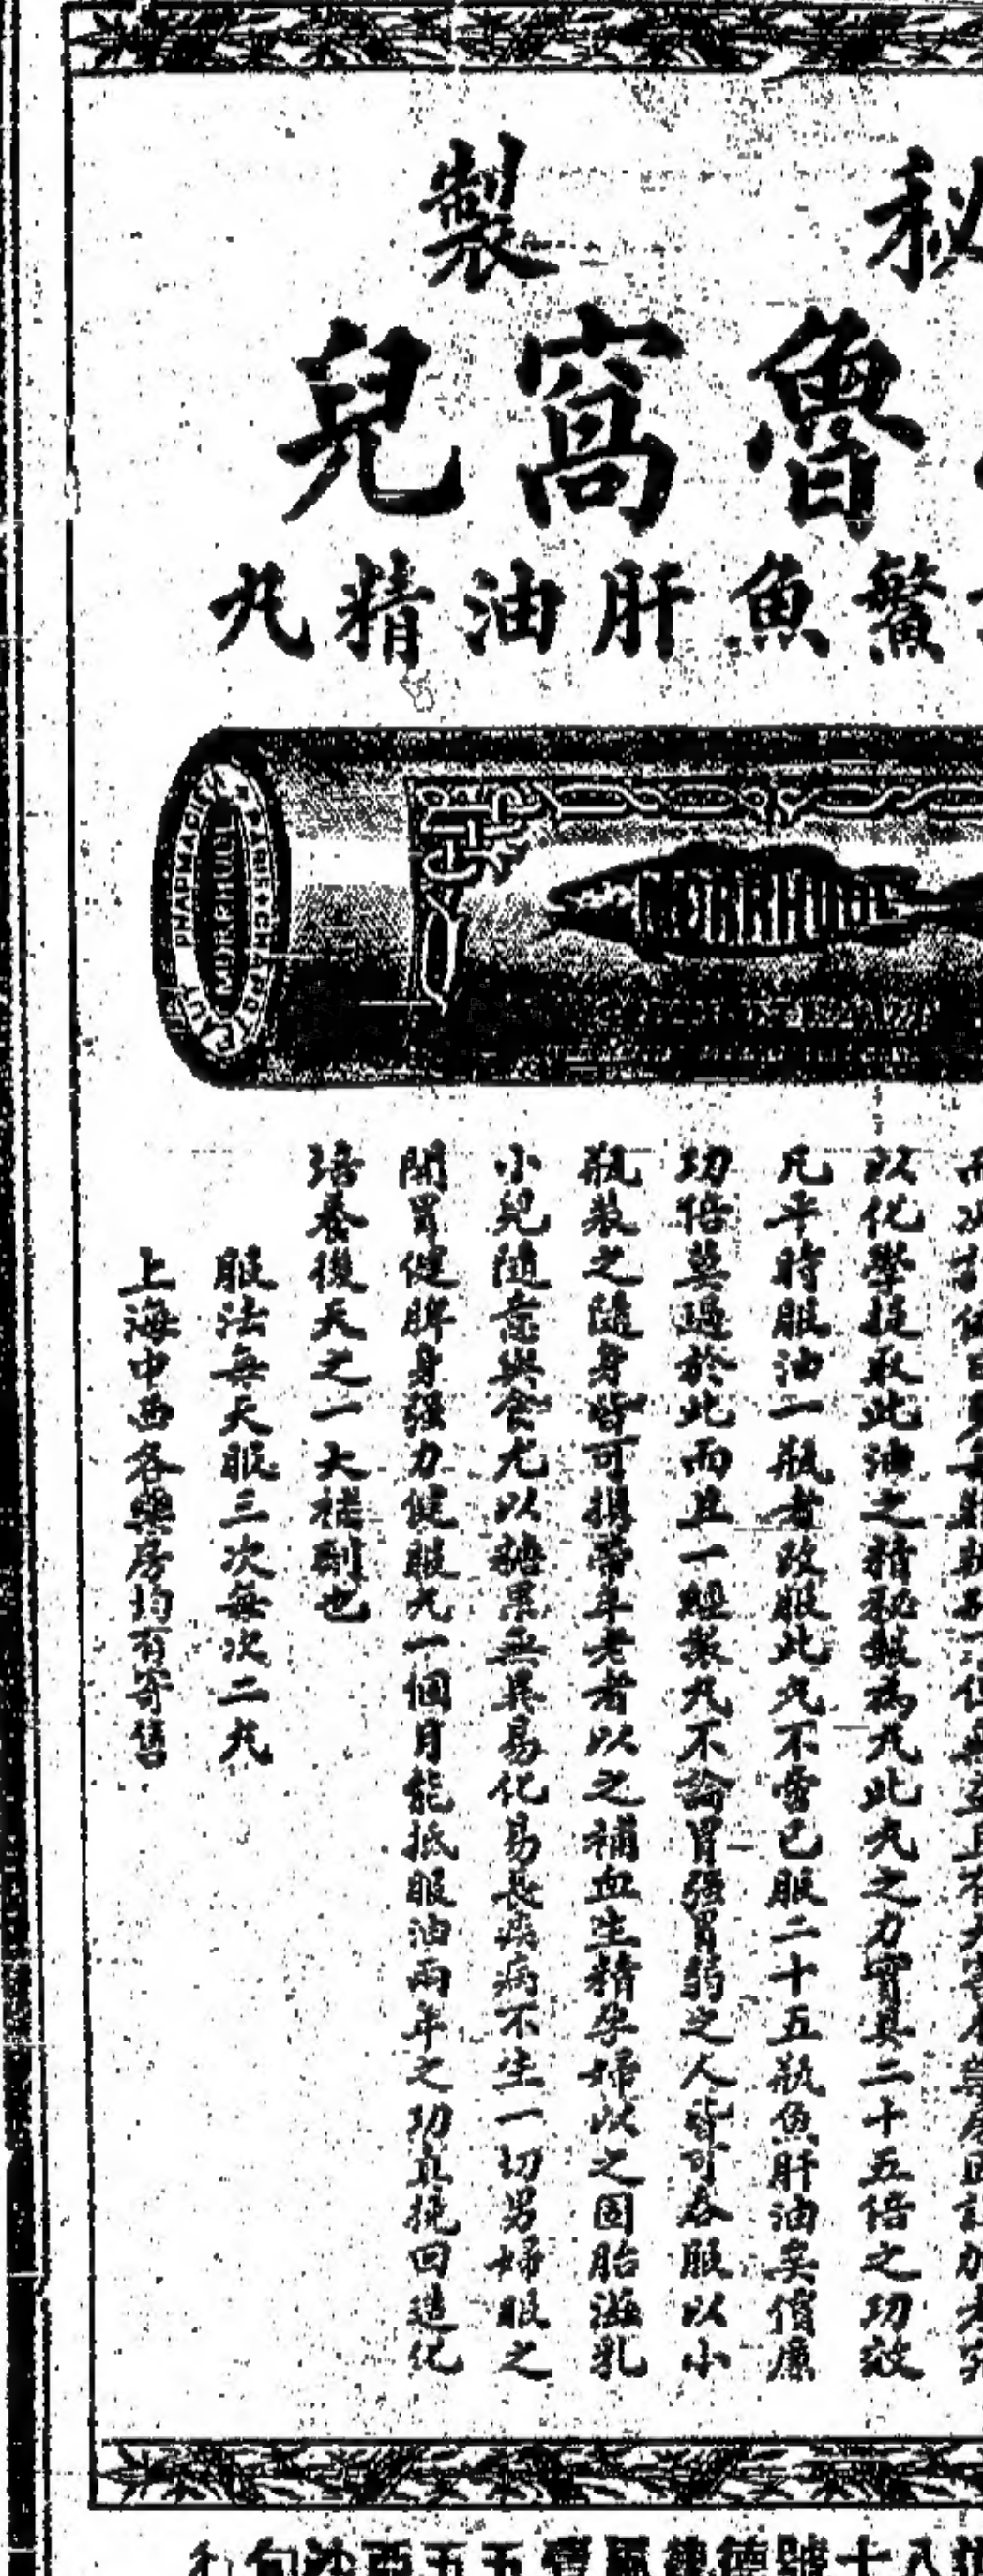 秘製
魯窩兒
鱉魚肝油精丸
MORRHUOL
CHAPOTEAUT PHARMACIEN PARIS
MORRHUOL
以化學提取此油之精秘製為丸此丸之力實具二十五倍之功效
凡平時服油一瓶者改服此丸不啻已服二十五瓶魚肝油矣價廉
功倍莫過於此而且一經製丸不論胃强胃弱之人皆可吞服以小
瓶裝之隨身皆可攜帶年老者以之補血生精孕婦以之固胎滋乳
小兒隨意與食尤以糖菓無異易化易長疾病不生一切男婦服之
開胃健脾身强力健服丸一個月能抵服油兩年之功真挽回造化
培養後天之一大補劑也
服法每天服三次每次二丸
上海中西各藥房均有寄售